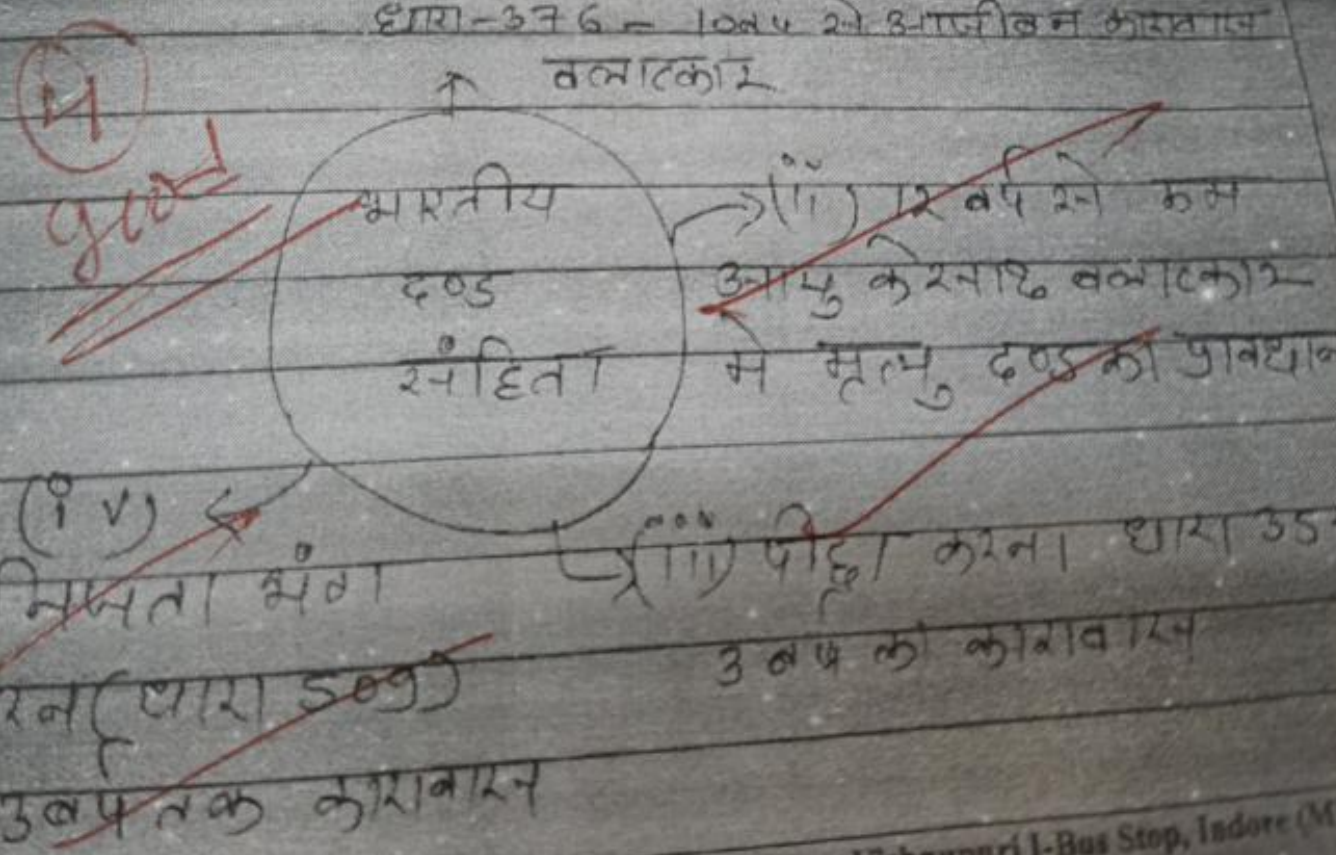 धारा-376 - 10वर्ष से आजीवन कारावास
बलात्कार
good
भारतीय
दण्ड
संहिता
(ii) 12 वर्ष से कम
आयु के साथ बलात्कार
मे मृत्यु दण्ड का प्रावधान
(iii) पीछा करना धारा
3 वर्ष का कारावास
(iv)
निजता भंग
(धारा 509)
3 वर्ष तक कारावास
I-Bus Stop, Indore (M